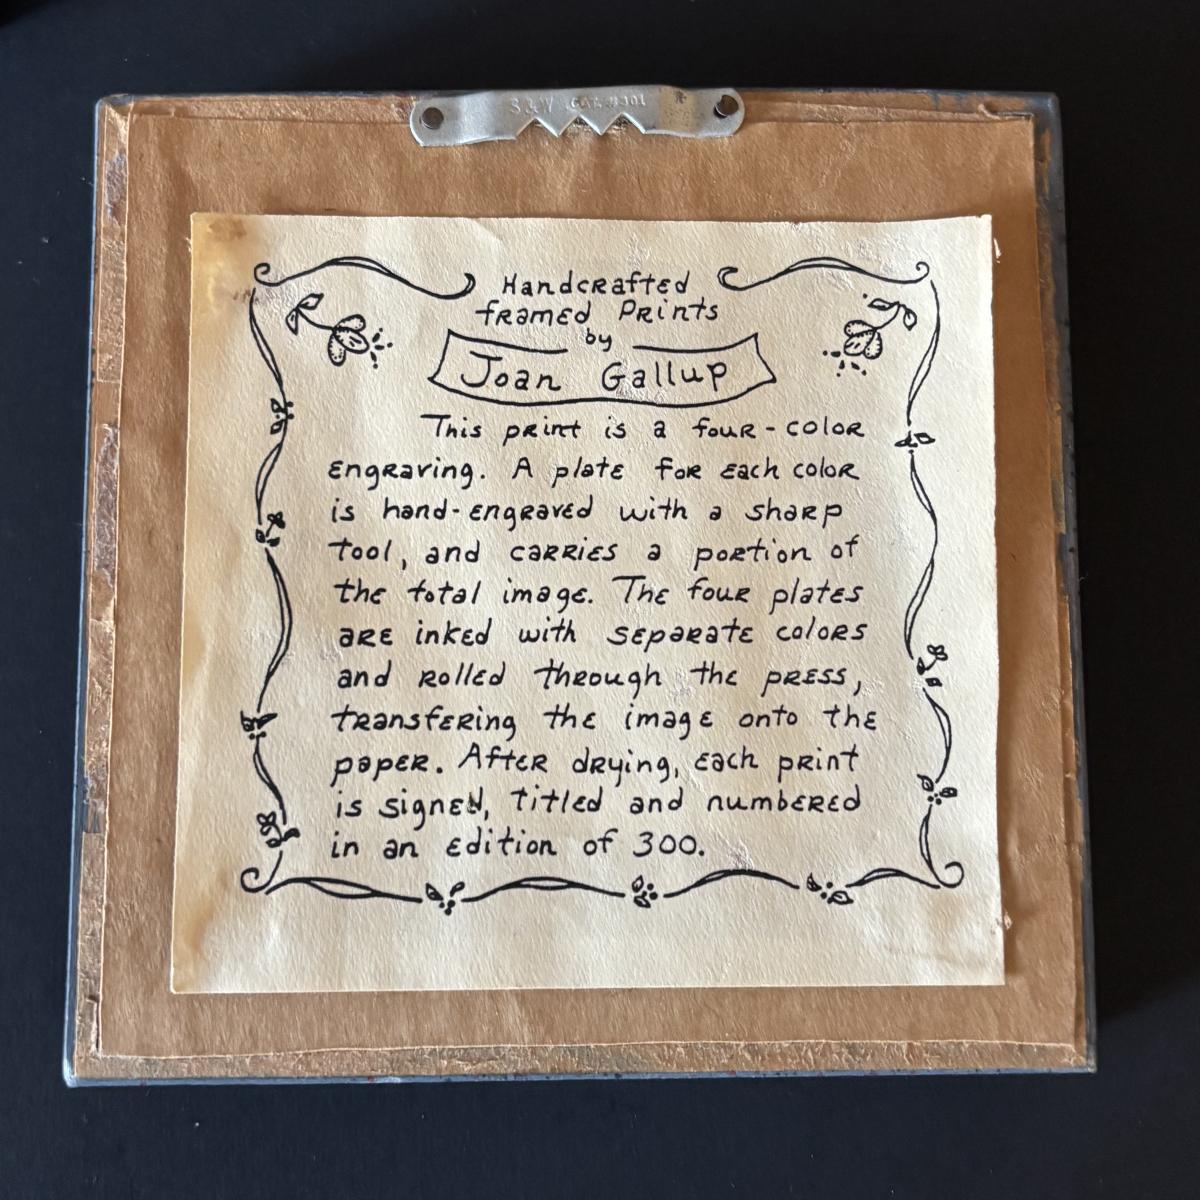 Handcrafted
framed Prints
by
Joan Gallup
This print is a four-color
engraving. A plate for each color
is hand-engraved with a sharp
tool, and carries a portion of
the total image. The four plates
are inked with separate colors
and rolled through the press,
transfering the image onto the
paper. After drying, each print
is signed, titled and numbered
in an edition of 300.